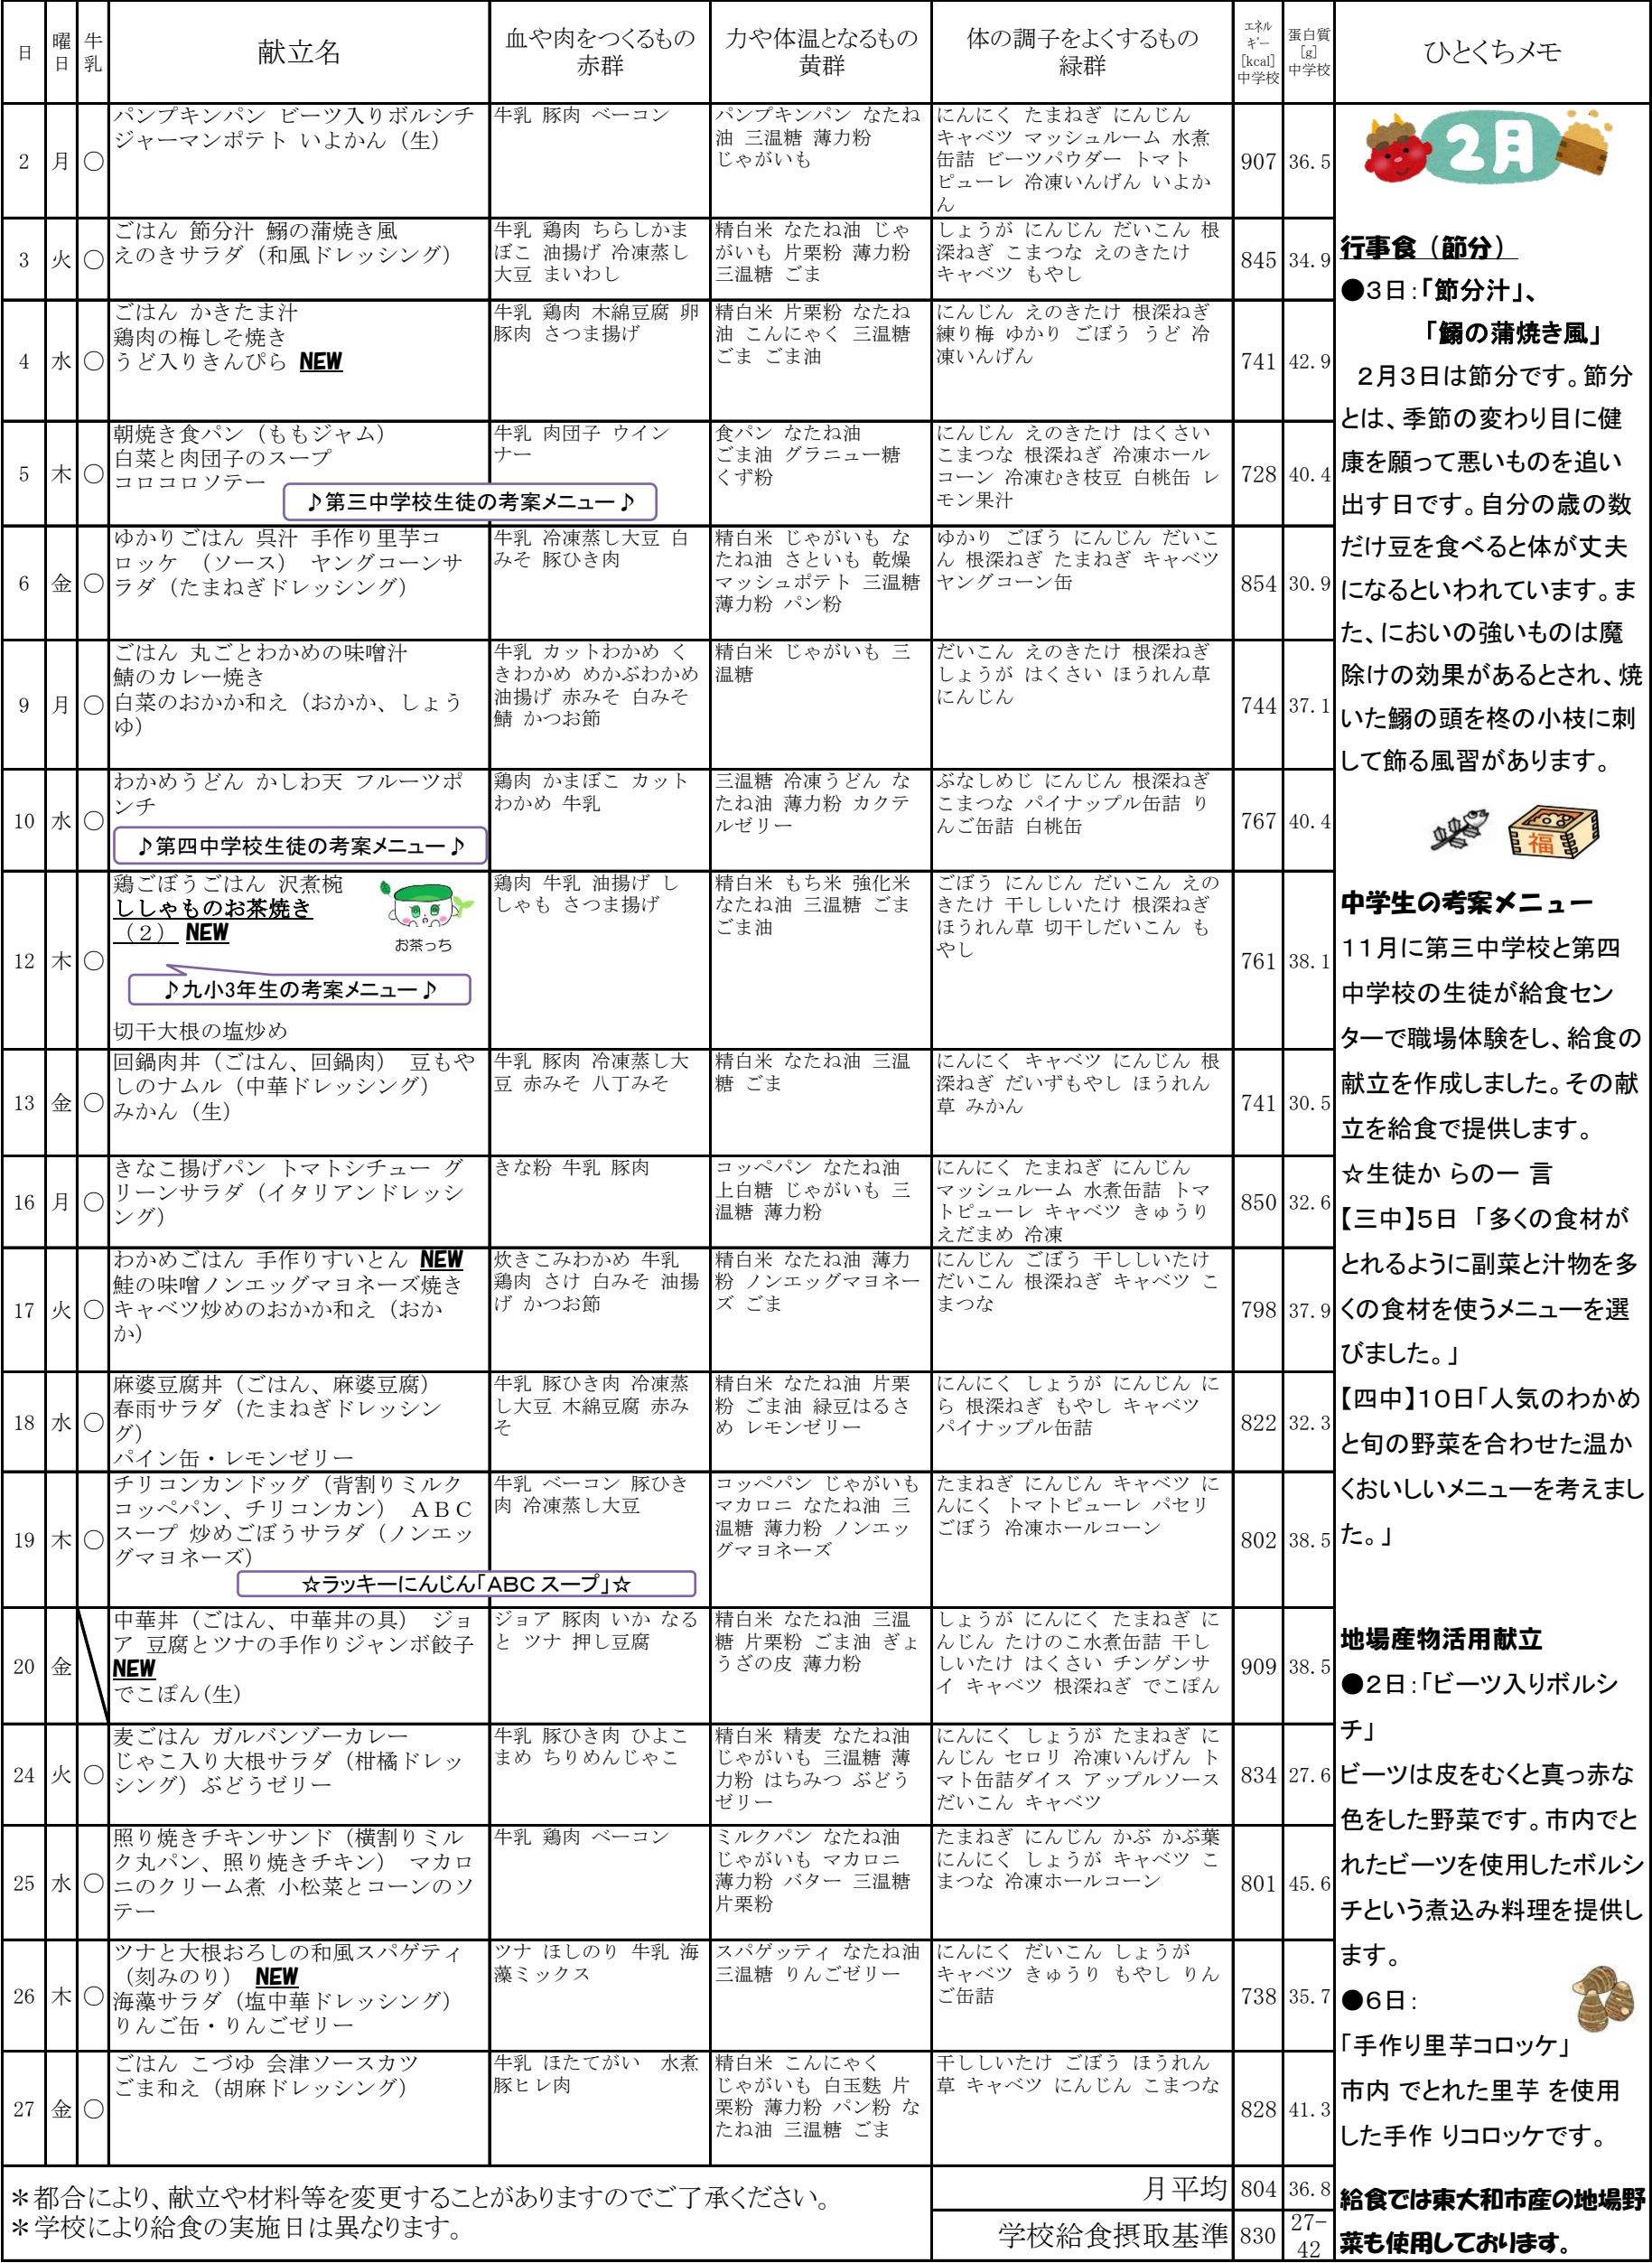 日
曜日
牛乳
献立名
血や肉をつくるもの
赤群
力や体温となるもの
黄群
体の調子をよくするもの
緑群
エネルギー
[kcal]
中学校
蛋白質
[g]
中学校
ひとくちメモ
2 月 ○
パンプキンパン ビーツ入りボルシチ
ジャーマンポテト いよかん（生）
牛乳 豚肉 ベーコン
パンプキンパン なたね
油 三温糖 薄力粉
じゃがいも
にんにく たまねぎ にんじん
キャベツ マッシュルーム 水煮
缶詰 ビーツパウダー トマト
ピューレ 冷凍いんげん いよか
ん
907 36.5
3 火 ○
ごはん 節分汁 鰯の蒲焼き風
えのきサラダ（和風ドレッシング）
牛乳 鶏肉 ちらしかま
ぼこ 油揚げ 冷凍蒸し
大豆 まいわし
精白米 なたね油 じゃ
がいも 片栗粉 薄力粉
三温糖 ごま
しょうが にんじん だいこん 根
深ねぎ こまつな えのきたけ
キャベツ もやし
845 34.9
4 水 ○
ごはん かきたま汁
鶏肉の梅しそ焼き
うど入りきんぴら NEW
牛乳 鶏肉 木綿豆腐 卵
豚肉 さつま揚げ
精白米 片栗粉 なたね
油 こんにゃく 三温糖
ごま ごま油
にんじん えのきたけ 根深ねぎ
練り梅 ゆかり ごぼう うど 冷
凍いんげん
741 42.9
5 木 ○
朝焼き食パン（ももジャム）
白菜と肉団子のスープ
コロコロソテー
♪第三中学校生徒の考案メニュー♪
牛乳 肉団子 ウイン
ナー
食パン なたね油
ごま油 グラニュー糖
くず粉
にんじん えのきたけ はくさい
こまつな 根深ねぎ 冷凍ホール
コーン 冷凍むき枝豆 白桃缶 レ
モン果汁
728 40.4
6 金 ○
ゆかりごはん 呉汁 手作り里芋コ
ロッケ （ソース） ヤングコーンサ
ラダ（たまねぎドレッシング）
牛乳 冷凍蒸し大豆 白
みそ 豚ひき肉
精白米 じゃがいも な
たね油 さといも 乾燥
マッシュポテト 三温糖
薄力粉 パン粉
ゆかり ごぼう にんじん だいこ
ん 根深ねぎ たまねぎ キャベツ
ヤングコーン缶
854 30.9
9 月 ○
ごはん 丸ごとわかめの味噌汁
鯖のカレー焼き
白菜のおかか和え（おかか、しょう
ゆ）
牛乳 カットわかめ く
きわかめ めかぶわかめ
油揚げ 赤みそ 白みそ
鯖 かつお節
精白米 じゃがいも 三
温糖
だいこん えのきたけ 根深ねぎ
しょうが はくさい ほうれん草
にんじん
744 37.1
10 水 ○
わかめうどん かしわ天 フルーツポ
ンチ
♪第四中学校生徒の考案メニュー♪
鶏肉 かまぼこ カット
わかめ 牛乳
三温糖 冷凍うどん な
たね油 薄力粉 カクテ
ルゼリー
ぶなしめじ にんじん 根深ねぎ
こまつな パイナップル缶詰 り
んご缶詰 白桃缶
767 40.4
12 木 ○
鶏ごぼうごはん 沢煮椀
ししゃものお茶焼き
（２） NEW
お茶っち
♪九小3年生の考案メニュー♪
切干大根の塩炒め
鶏肉 牛乳 油揚げ し
しゃも さつま揚げ
精白米 もち米 強化米
なたね油 三温糖 ごま
ごま油
ごぼう にんじん だいこん えの
きたけ 干ししいたけ 根深ねぎ
ほうれん草 切干しだいこん も
やし
761 38.1
13 金 ○
回鍋肉丼（ごはん、回鍋肉） 豆もや
しのナムル（中華ドレッシング）
みかん（生）
牛乳 豚肉 冷凍蒸し大
豆 赤みそ 八丁みそ
精白米 なたね油 三温
糖 ごま
にんにく キャベツ にんじん 根
深ねぎ だいずもやし ほうれん
草 みかん
741 30.5
16 月 ○
きなこ揚げパン トマトシチュー グ
リーンサラダ（イタリアンドレッシ
ング）
きな粉 牛乳 豚肉
コッペパン なたね油
上白糖 じゃがいも 三
温糖 薄力粉
にんにく たまねぎ にんじん
マッシュルーム 水煮缶詰 トマ
トピューレ キャベツ きゅうり
えだまめ 冷凍
850 32.6
17 火 ○
わかめごはん 手作りすいとん NEW
鮭の味噌ノンエッグマヨネーズ焼き
キャベツ炒めのおかか和え（おか
か）
炊きこみわかめ 牛乳
鶏肉 さけ 白みそ 油揚
げ かつお節
精白米 なたね油 薄力
粉 ノンエッグマヨネー
ズ ごま
にんじん ごぼう 干ししいたけ
だいこん 根深ねぎ キャベツ こ
まつな
798 37.9
18 水 ○
麻婆豆腐丼（ごはん、麻婆豆腐）
春雨サラダ（たまねぎドレッシン
グ）
パイン缶・レモンゼリー
牛乳 豚ひき肉 冷凍蒸
し大豆 木綿豆腐 赤み
そ
精白米 なたね油 片栗
粉 ごま油 緑豆はるさ
め レモンゼリー
にんにく しょうが にんじん に
ら 根深ねぎ もやし キャベツ
パイナップル缶詰
822 32.3
19 木 ○
チリコンカンドッグ（背割りミルク
コッペパン、チリコンカン） ＡＢＣ
スープ 炒めごぼうサラダ（ノンエッ
グマヨネーズ）
☆ラッキーにんじん「ABC スープ」☆
牛乳 ベーコン 豚ひき
肉 冷凍蒸し大豆
コッペパン じゃがいも
マカロニ なたね油 三
温糖 薄力粉 ノンエッ
グマヨネーズ
たまねぎ にんじん キャベツ に
んにく トマトピューレ パセリ
ごぼう 冷凍ホールコーン
802 38.5
20 金
中華丼（ごはん、中華丼の具） ジョ
ア 豆腐とツナの手作りジャンボ餃子
NEW
でこぽん(生)
ジョア 豚肉 いか なる
と ツナ 押し豆腐
精白米 なたね油 三温
糖 片栗粉 ごま油 ぎょ
うざの皮 薄力粉
しょうが にんにく たまねぎ に
んじん たけのこ水煮缶詰 干し
しいたけ はくさい チンゲンサ
イ キャベツ 根深ねぎ でこぽん
909 38.5
24 火 ○
麦ごはん ガルバンゾーカレー
じゃこ入り大根サラダ（柑橘ドレッ
シング）ぶどうゼリー
牛乳 豚ひき肉 ひよこ
まめ ちりめんじゃこ
精白米 精麦 なたね油
じゃがいも 三温糖 薄
力粉 はちみつ ぶどう
ゼリー
にんにく しょうが たまねぎ に
んじん セロリ 冷凍いんげん ト
マト缶詰ダイス アップルソース
だいこん キャベツ
834 27.6
25 水 ○
照り焼きチキンサンド（横割りミル
ク丸パン、照り焼きチキン） マカロ
ニのクリーム煮 小松菜とコーンのソ
テー
牛乳 鶏肉 ベーコン
ミルクパン なたね油
じゃがいも マカロニ
薄力粉 バター 三温糖
片栗粉
たまねぎ にんじん かぶ かぶ葉
にんにく しょうが キャベツ こ
まつな 冷凍ホールコーン
801 45.6
26 木 ○
ツナと大根おろしの和風スパゲティ
（刻みのり） NEW
海藻サラダ（塩中華ドレッシング）
りんご缶・りんごゼリー
ツナ ほしのり 牛乳 海
藻ミックス
スパゲッティ なたね油
三温糖 りんごゼリー
にんにく だいこん しょうが
キャベツ きゅうり もやし りん
ご缶詰
738 35.7
27 金 ○
ごはん こづゆ 会津ソースカツ
ごま和え（胡麻ドレッシング）
牛乳 ほたてがい 水煮
豚ヒレ肉
精白米 こんにゃく
じゃがいも 白玉麩 片
栗粉 薄力粉 パン粉 な
たね油 三温糖 ごま
干ししいたけ ごぼう ほうれん
草 キャベツ にんじん こまつな
828 41.3
＊都合により、献立や材料等を変更することがありますのでご了承ください。
＊学校により給食の実施日は異なります。
月平均 804 36.8
学校給食摂取基準 830 27-42
2月
行事食（節分）
●3日：「節分汁」、
「鰯の蒲焼き風」
２月３日は節分です。節分
とは、季節の変わり目に健
康を願って悪いものを追い
出す日です。自分の歳の数
だけ豆を食べると体が丈夫
になるといわれています。ま
た、においの強いものは魔
除けの効果があるとされ、焼
いた鰯の頭を柊の小枝に刺
して飾る風習があります。
福
中学生の考案メニュー
11月に第三中学校と第四
中学校の生徒が給食セン
ターで職場体験をし、給食の
献立を作成しました。その献
立を給食で提供します。
☆生徒か らの一 言
【三中】5日 「多くの食材が
とれるように副菜と汁物を多
くの食材を使うメニューを選
びました。」
【四中】10日「人気のわかめ
と旬の野菜を合わせた温か
くおいしいメニューを考えまし
た。」
地場産物活用献立
●2日：「ビーツ入りボルシ
チ」
ビーツは皮をむくと真っ赤な
色をした野菜です。市内でと
れたビーツを使用したボルシ
チという煮込み料理を提供し
ます。
●6日：
「手作り里芋コロッケ」
市内 でとれた里芋 を使用
した手作 りコロッケです。
給食では東大和市産の地場野
菜も使用しております。